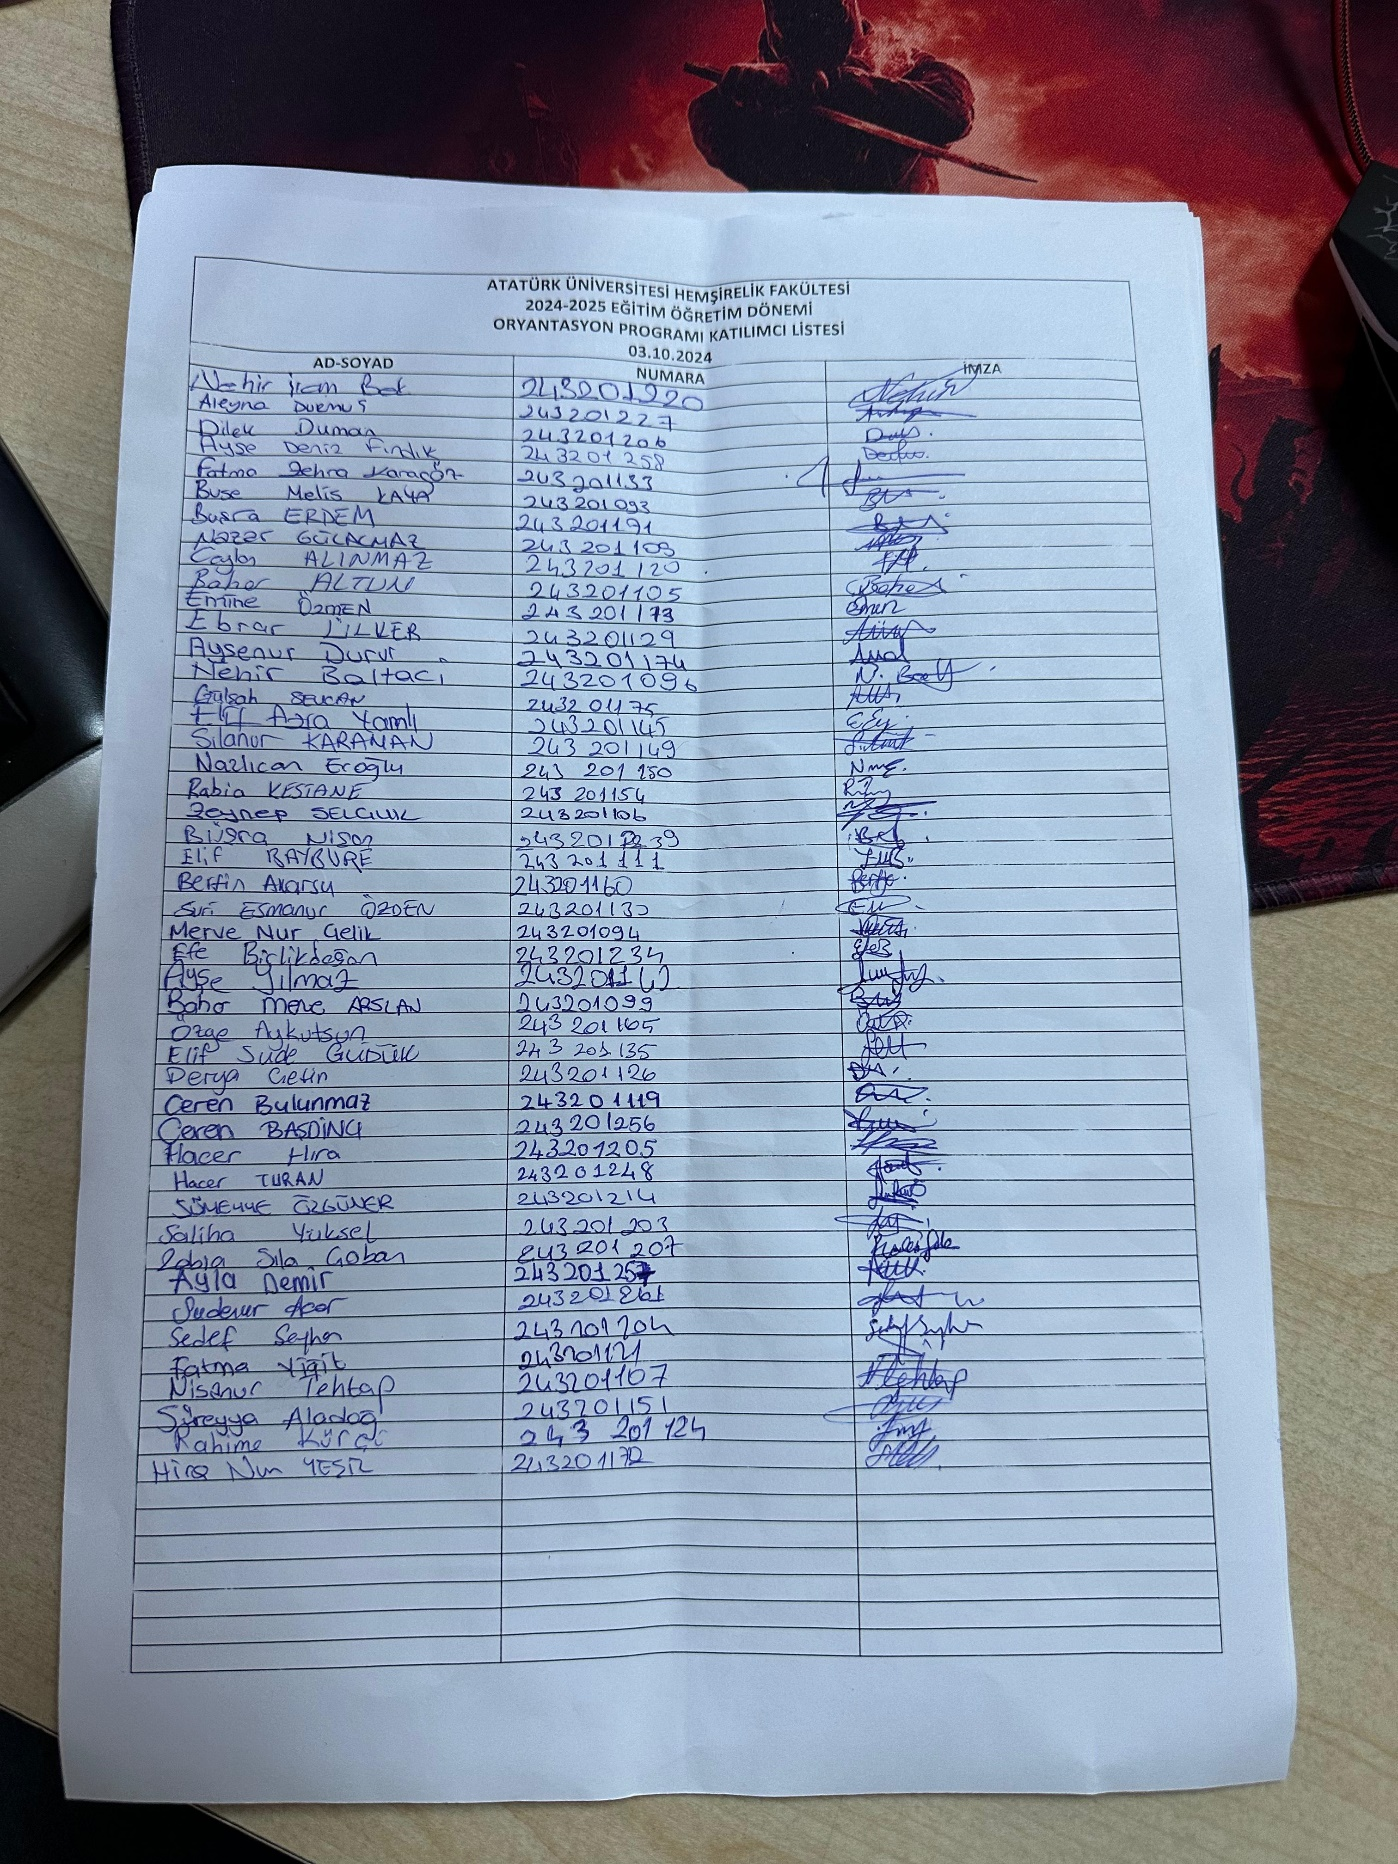 ATATÜRK ÜNİVERSİTESİ HEMŞİRELİK FAKÜLTESİ
2024-2025 EĞİTİM ÖĞRETİM DÖNEMİ
ORYANTASYON PROGRAMI KATILIMCI LİSTESİ
03.10.2024
AD-SOYAD NUMARA İMZA
Nehir İrem 243201220
Aleyna Durmuş 243201227
Dilek Duman 243201206
Ayşe Deniz Fındık 243201258
Fatma Zehra Karagöz 243201133
Buse Melis KAYA 243201093
Büşra ERDEM 243201191
243201109
Ceylan ALINMAZ 243201120
Bahar ALTUN 243201105
Emine ÖZMEN 243201173
Ebrar 243201129
Ayşenur Durur 243201174
Nehir Baltacı 243201096 N.
Gülşah 243201175
Elif Azra Yamlı 243201145
Silanur KARAMAN 243201149
Nazlıcan Eroğlu 243 201 150
Rabia KESTANE 243 201154
Zeynep SELÇUK 243201106
Büşra Nişan
Elif BAYBURE 243 201 111
Berfin Akarsu 243201160
Esmanur ÖZDEN 243201130
Merve Nur Çelik 243201094
Efe Biçlikdoğan 243201234
Ayşe Yılmaz
Bahar Merve ARSLAN 243201099
Özge Aykutsun 243 201165
Elif Sude GÜDÜK 243 201 135
Derya Çetin 243201126
Ceren Bulunmaz 243201119
Ceren BAŞDİNÇ 243201256
Hacer Hira 243201205
Hacer TURAN 243201248
SÜMEYYE ÖZGÜNER 243201214
Saliha Yüksel 243 201 203
Sıla Çoban 243 201 207
Ayla Demir
Sudenur Acar
Sedef Seyhan 243201204
Fatma Yiğit 243201121
Nisanur Tehtap 243201167 Tehtap
Süreyya Aladağ 243201151
Rahime 243 201 124
Hira Nur 243201172